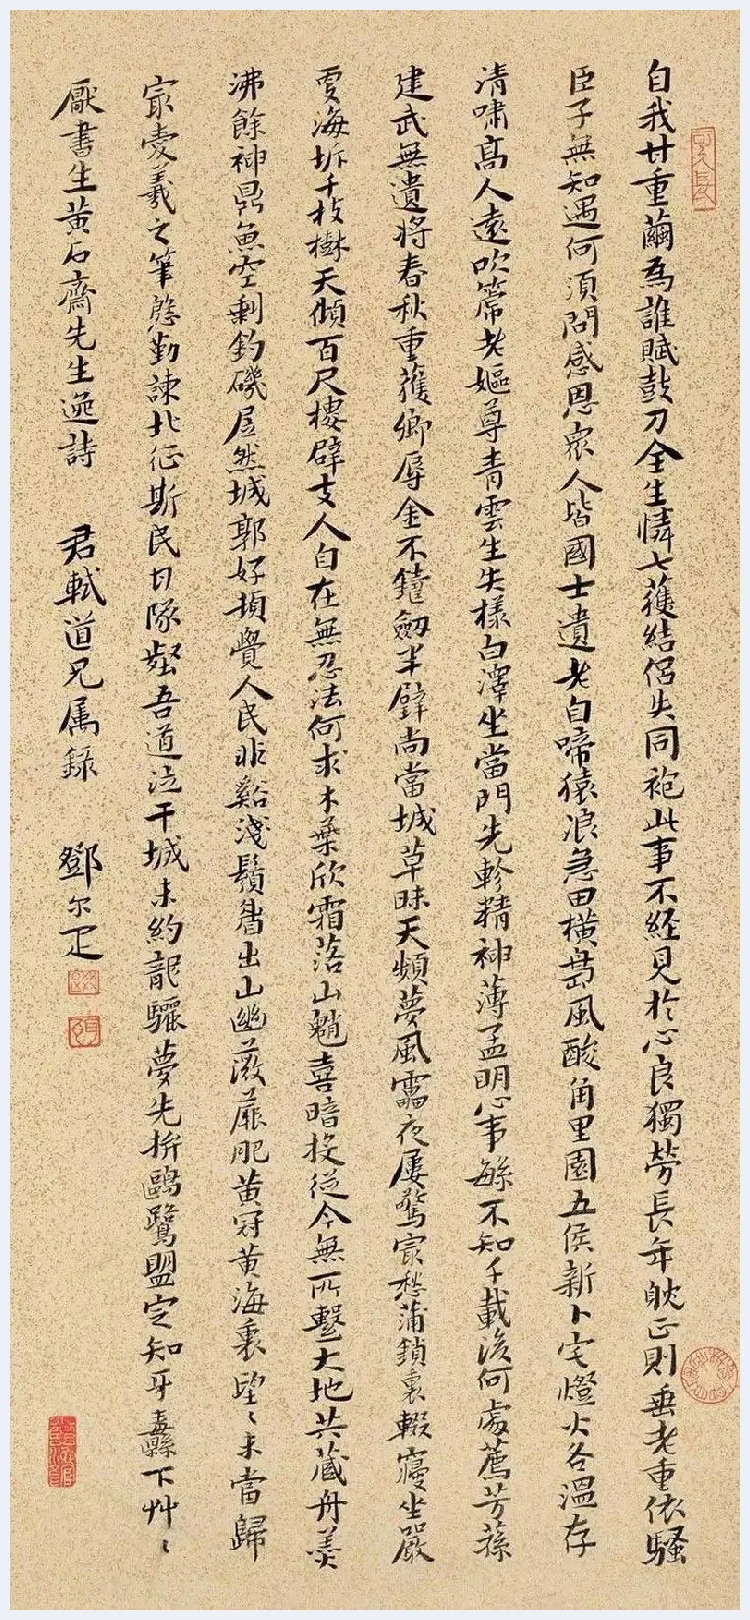 自我廿重繭為誰賦鼓刀全生憐七蒦結侶失同袍此事不經見於心良獨勞長年耽正則垂老重依騷
臣子無知遇何須問感恩眾人皆國士遺老自啼猿浪急田橫島風酸角里園五侯新卜宅燈火各溫存
清嘯高人遠吹簫老嫗尊青雲生失樣白澤坐當門先軫精神薄孟明心事繇不知千載後何處薦芳蓀
建武無遺將春秋重蒦卿辱金不鑄劒半壁尚當城草昧天頻夢風霜夜屢驚寂愁蒲鎖裏輟寢坐嚴
更海坼千枝樹天傾百尺樓辟支人自在無忍法何求木葉欣霜落山魈喜暗投從今無所繫大地共藏舟羹
沸餘神鼎魚空剩釣磯居然城郭好頓覺人民非谿淺鬚眉出山幽薇蕨肥黃冠黃海裏望〻未當歸
寂愛羲之筆慇勤諫北征斯民甘隊壑吾道泣干城未約龍驪夢先拚鷗鷺盟定知牙纛下艸〻
厭書生黃石齋先生逸詩 君軾道兄属錄 鄧尔疋